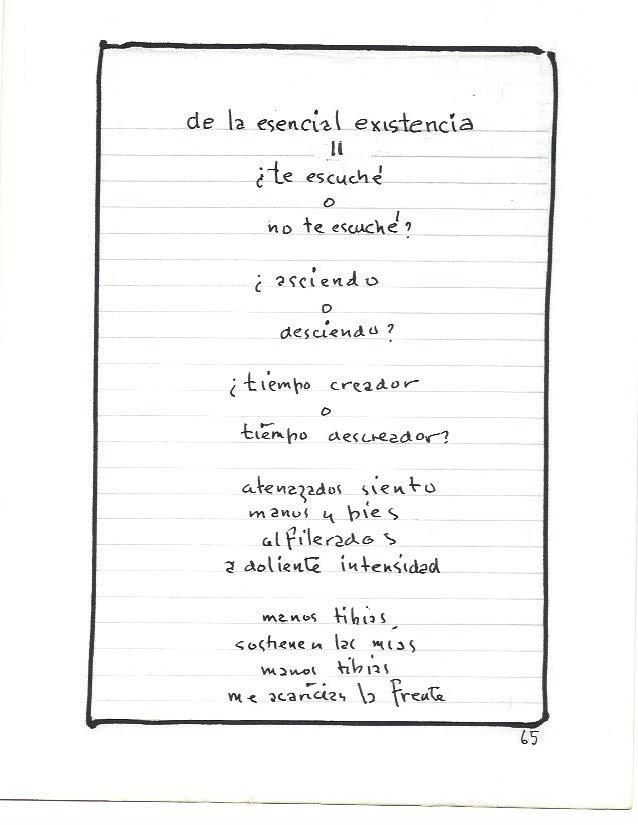 de la esencial existencia
II
¿te escuché
o
no te escuché?
¿asciendo
o
desciendo?
¿tiempo creador
o
tiempo descreador?
atenazados siento
manos y pies
alfilerados
a doliente intensidad
manos tibias
sostienen las mías
manos tibias
me acarician la frente
65